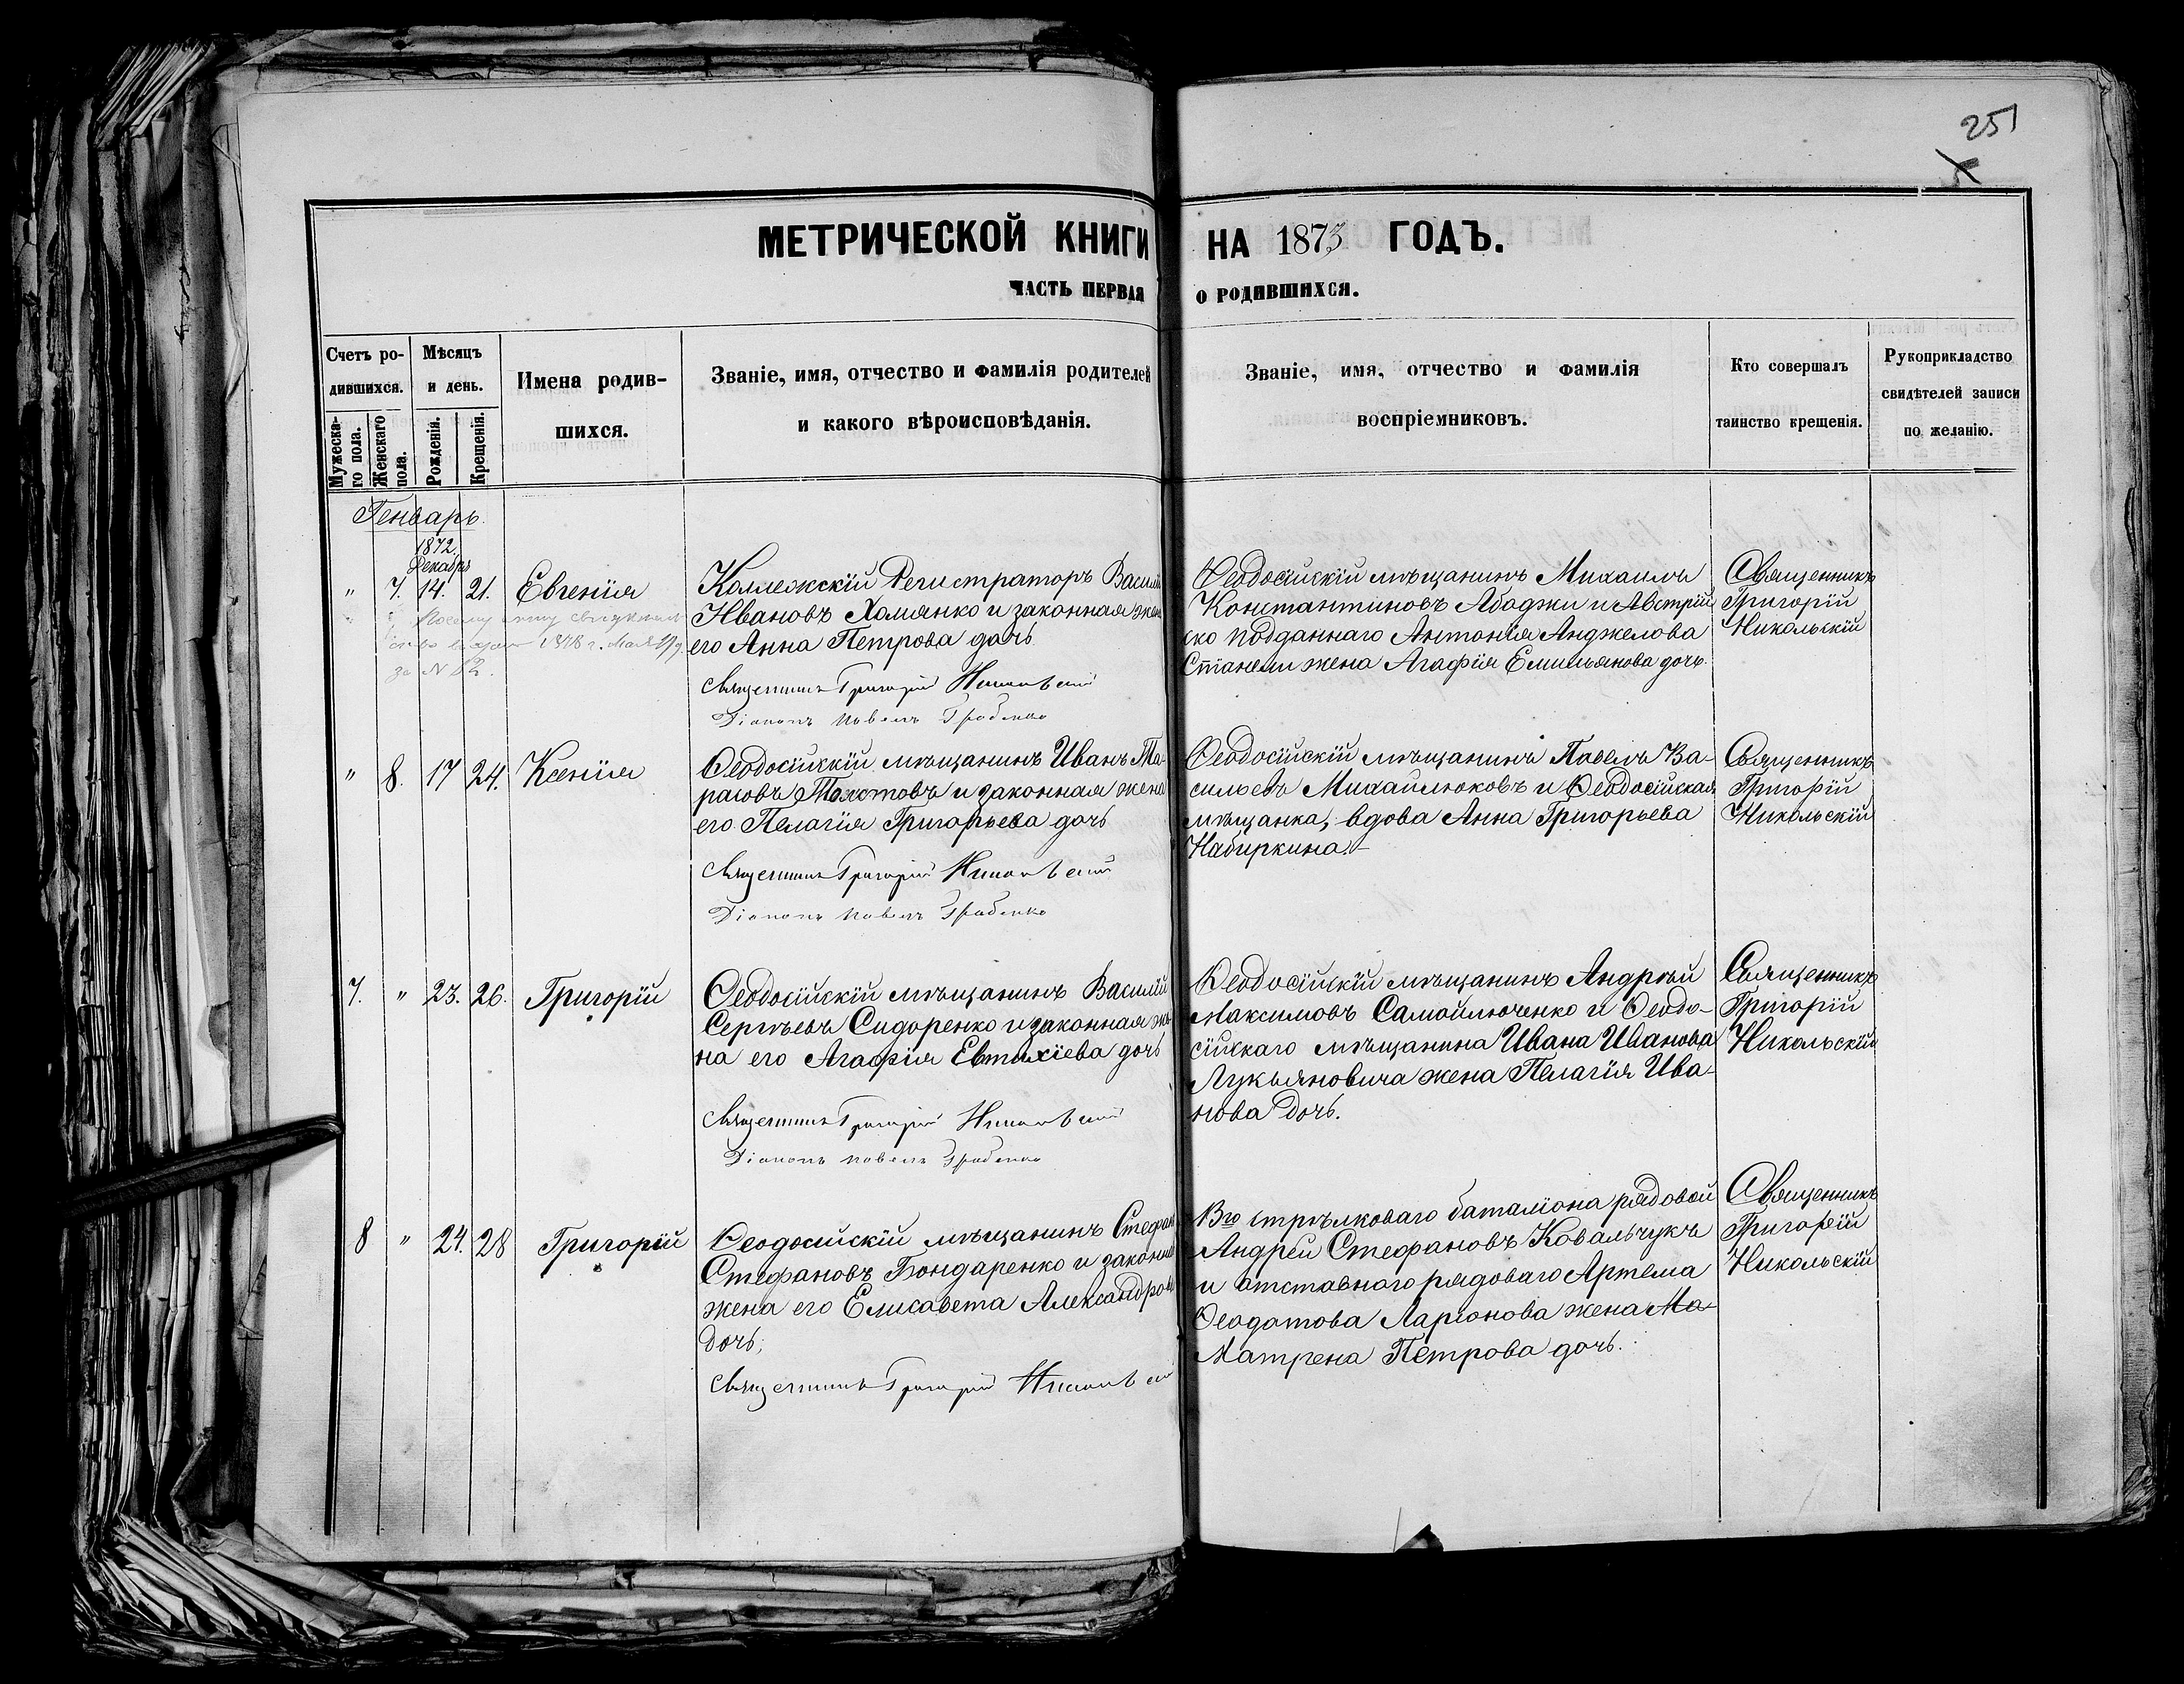 251
МЕТРИЧЕСКОЙ КНИГИ НА 1873 ГОДЪ.
ЧАСТЬ ПЕРВАЯ О РОДИВШИХСЯ.
Счетъ ро-
дившихся.
Мужеска-
го пола.
Женскаго
пола.
Мѣсяцъ
и день.
Рожденія.
Крещенія.
Имена родив-
шихся.
Званіе, имя, отчество и фамилія родителей
и какого вѣроисповѣданія.
Званіе, имя, отчество и фамилія
воспріемниковъ.
Кто совершалъ
таинство крещенія.
Рукоприкладство
свидѣтелей записи
по желанію.
Генварь.
1872.
Декабрь
" 7. 14. 21. Евгенія
1878 г. Мая
за № 62.
Коллежскій Регистраторъ Васил
Ивановъ Хомянко и законная жен
его Анна Петрова дочь
Священникъ Григорій Никольскій
Діаконъ Павелъ
Ѳеодосійскій мѣщанинъ Михаилъ
Константиновъ Абаджи и Австрій
ско подданнаго Антонія Анджелова
Станели жена Агафія Емильянова дочь.
Священникъ
Григорій
Никольскій
" 8. 17 24. Ксенія
Ѳеодосійскій мѣщанинъ Иванъ Та-
расовъ Толстовъ и законная жена
его Пелагія Григорьева дочь
Священникъ Григорій Никольскій
Діаконъ Павелъ
Ѳеодосійскій мѣщанинъ Павелъ Ва-
сильевъ Михайлюковъ и Ѳеодосійская
мѣщанка, вдова Анна Григорьева
Набиркина.-
Священникъ
Григорій
Никольскій
7. " 23. 26. Григорій
Ѳеодосійскій мѣщанинъ Василій
Сергѣевъ Сидоренко и законная же-
на его Агафія Евтихіева дочь
Священникъ Григорій Никольскій
Діаконъ Павелъ
Ѳеодосійскій мѣщанинъ Андрѣй
Максимовъ Самойлюченко и Ѳеодо-
сійскаго мѣщанина Ивана Иванова
Лукьяновича жена Пелагія Ива-
нова дочь.
Священникъ
Григорій
Никольскій
8 " 24. 28 Григорій
Ѳеодосійскій мѣщанинъ Стефан
Стефановъ Бондаренко и законная
жена его Елисавета Александрова
дочь;
Священникъ Григорій Никольскій
стрѣлковаго баталіона рядовой
Андрей Стефановъ Ковальчукъ
и отставного рядоваго Артема
Ѳеодотова Ларіонова жена Ма-
Матрена Петрова дочь.
Священникъ
Григорій
Никольскій